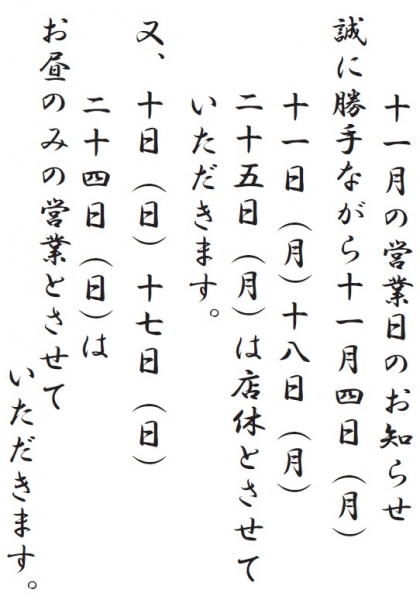 十一月の営業日のお知らせ
誠に勝手ながら十一月四日（月）
十一日（月）十八日（月）
二十五日（月）は店休とさせて
いただきます。
又、十日（日）十七日（日）
二十四日（日）は
お昼のみの営業とさせて
いただきます。